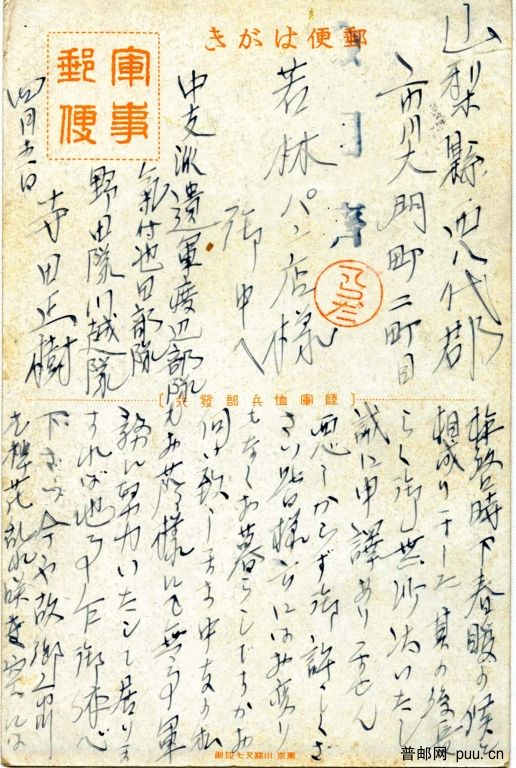 郵便はがき
軍事
郵便
山梨縣西八代郡
市川大門町二町目
若林パン店様
御中
中支派遣軍渡辺部隊
気付池田部隊
野田隊川越隊
寺田正樹
四月
陸軍恤兵部發
拝啓時下春暖の候と
相成りました 其の後長
らく御無沙汰いたし
誠に申譯ありません
悪しからず御許しくだ
さい 皆様方にはお変り
もなくお暮しですか
伺ひ致します 中支の私
もお蔭様にて無事軍
務に努力いたして居りま
すれば他事乍御休心
下さい 今や故郷
花乱れ咲き
東京 川 又七印刷
普邮网 puu.cn